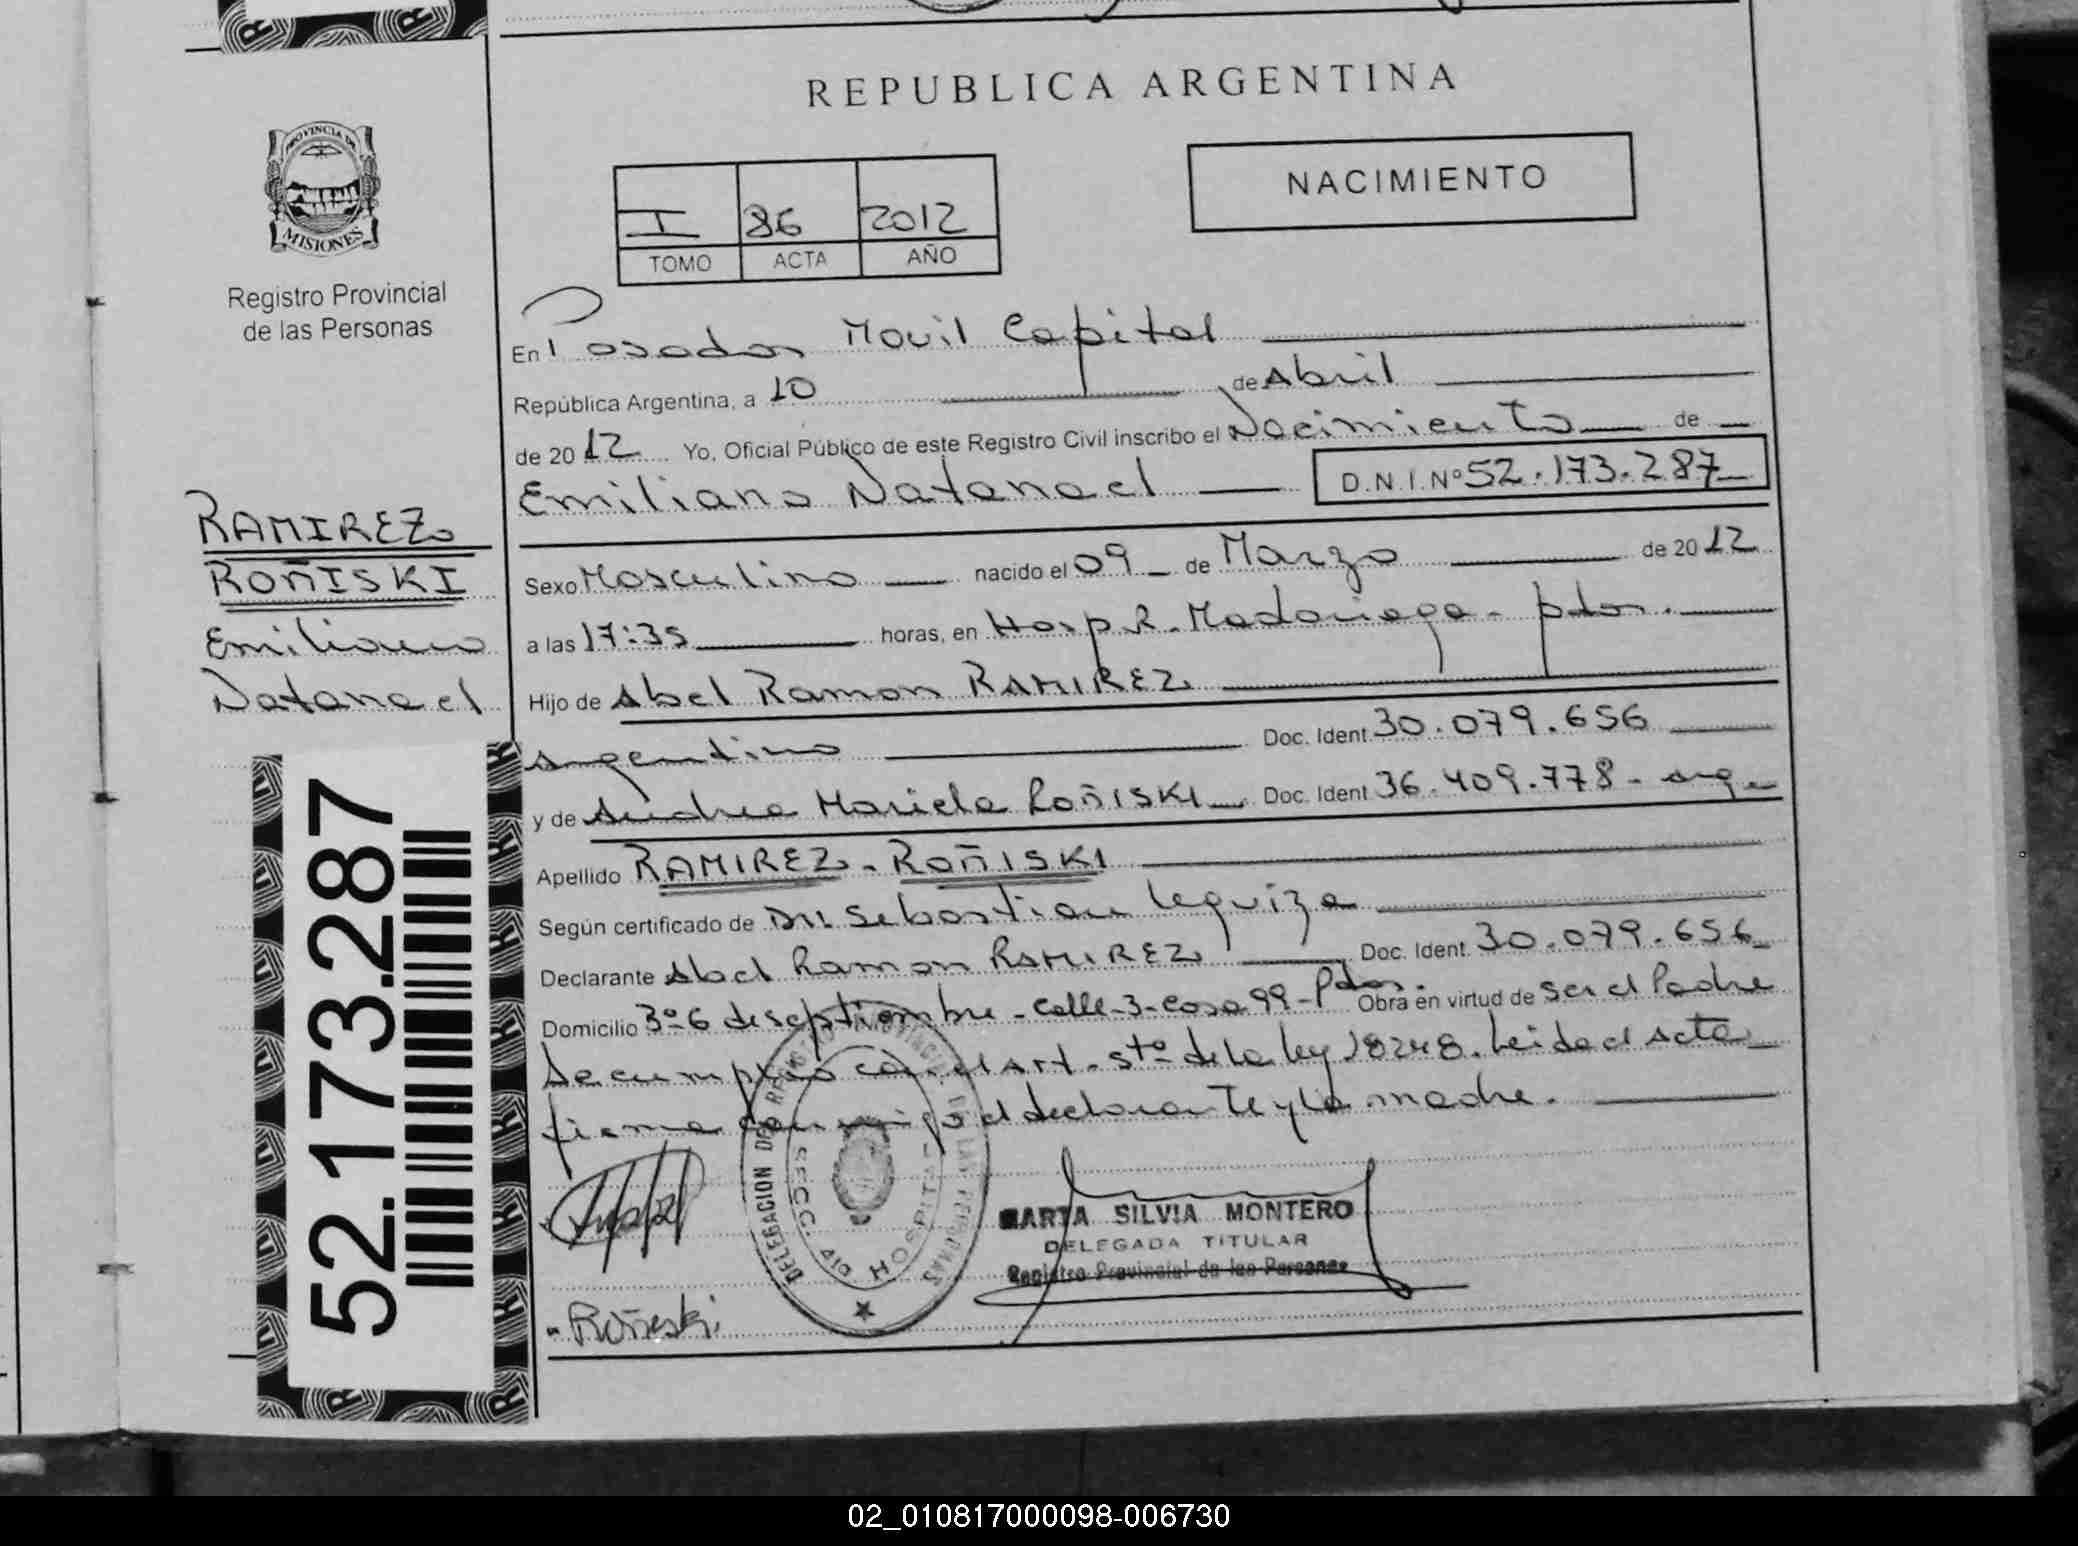 REPUBLICA ARGENTINA
PROVINCIA DE
MISIONES
Registro Provincial
de las Personas
I 86 2012
TOMO ACTA AÑO
NACIMIENTO
En Posadas Movil Capital
República Argentina, a 10 de Abril
de 2012 Yo, Oficial Público de este Registro Civil inscribo el Nacimiento de
Emiliano Natanael D.N.I. Nº 52.173.287
RAMIREZ
ROÑISKI
Emiliano
Natanael
Sexo Masculino nacido el 09 de Marzo de 2012
a las 17:35 horas, en Hosp. R. Madariaga - pdas.
Hijo de Abel Ramon RAMIREZ
Argentino Doc. Ident 30.079.656
y de Andrea Mariela ROÑISKI Doc. Ident 36.409.778 - arg.
Apellido RAMIREZ - ROÑISKI
Según certificado de Dr. Sebastian Leguiza
Declarante Abel Ramon RAMIREZ Doc. Ident. 30.079.656
Domicilio Bº 6 de septiembre - Calle - 3 - Casa 99 - Pdas. Obra en virtud de ser el Padre
Se cumplió con el Art. 5to de la ley 18248. Leida el Acta
firma conmigo el declarante y la madre.
52.173.287
DELEGACION DEL REGISTRO PROVINCIAL DE LAS PERSONAS
SECC. HOSPITAL
MARTA SILVIA MONTERO
DELEGADA TITULAR
Registro Provincial de las Personas
Roñiski
02_010817000098-006730